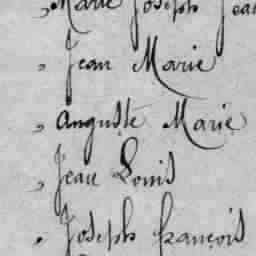 , Marie Joseph Jean
, Jean Marie
, Auguste Marie
, Jean Louis
, Joseph françois